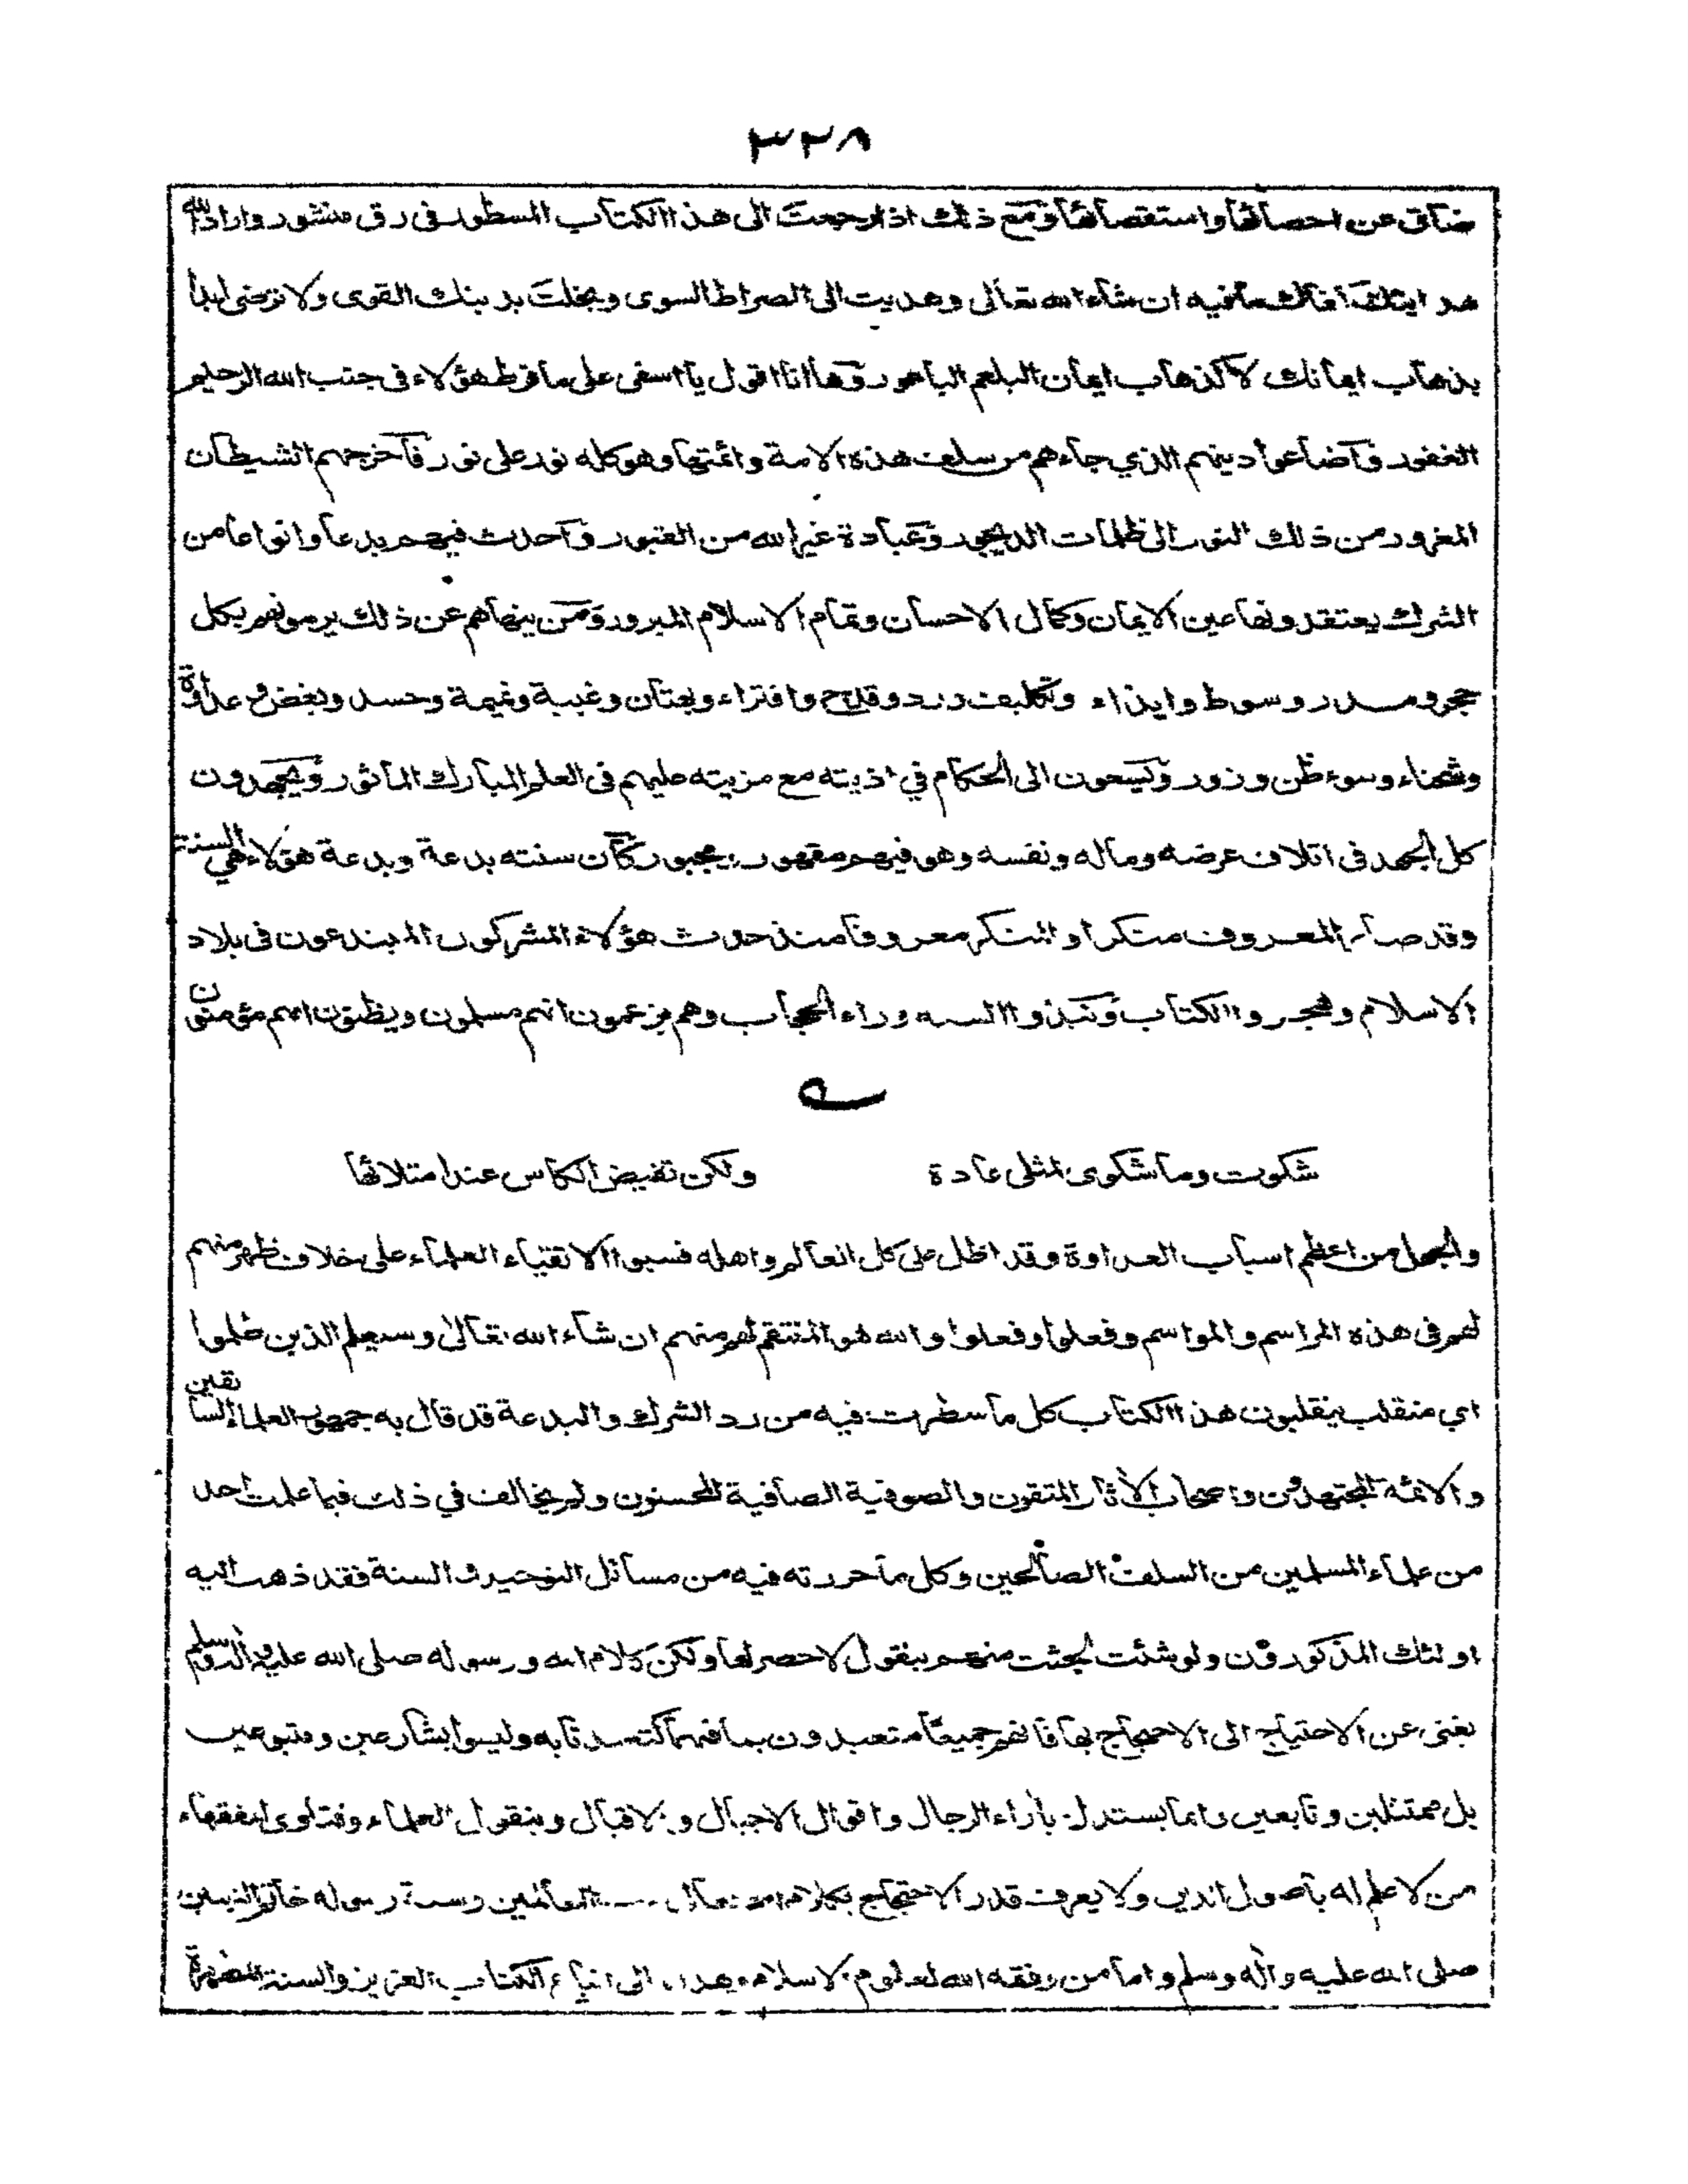 ٣٢٨
ضاق عن احصائها واستقصائها ومع ذلك اذا رجعت الى هذا الكتاب المسطور فى رق منشور واراد الله
هدايتك افادك ما فيه ان شاء الله تعالى وهديت الى الصراط السوى وبخلت بدينك القوى ولا ترضى ابدا
بذهاب ايمانك لا كذهاب ايمان البلعم الباعور وها انا اقول يا اسفى على ما فرط هؤلاء فى جنب الله الرحيم
الغفور فاضاعوا دينهم الذي جاءهم من سلف هذه الامة وائمتها وهو كله نور على نور فاخرجهم الشيطان
المغرور من ذلك النور الى ظلمات الديجور وعبادة غير الله من القبور واحدث فيهم بدعا وانواعا من
الشرك يعتقدونها عين الايمان وكمال الاحسان وتمام الاسلام المبرور ومن ينهاهم عن ذلك يرمونهم بكل
حجر ومدر وسوط وايذاء وتكليف ورد وقدح وافتراء وبهتان وغيبة ونميمة وحسد وبغض وعداوة
وشحناء وسوء ظن وزور ويسعون الى الحكام في اذيته مع مزيته عليهم فى العلم المبارك الماثور ويجهدون
كل الجهد فى اتلاف عرضه وماله ونفسه وهو فيهم مقهور مجبور كأن سنته بدعة وبدعة هؤلاء هي السنة
وقد صار المعروف منكرا والمنكر معروفا منذ حدث هؤلاء المشركون المبتدعون فى بلاد
الاسلام وهجروا الكتاب ونبذوا السنة وراء الحجاب وهم يزعمون انهم مسلمون ويظنون انهم مؤمنون
شكوت وما شكوى لمثلى عادة ولكن تفيض الكاس عند امتلائها
والجهل من اعظم اسباب العداوة وقد اظل على كل العالم واهله فسبوا الاتقياء العلماء على خلاف ظهر منهم
لهم فى هذه المراسم والمواسم وفعلوا وفعلوا والله هو المنتقم لهم منهم ان شاء الله تعالى وسيعلم الذين ظلموا
اي منقلب ينقلبون هذا الكتاب كل ما سطرت فيه من رد الشرك والبدعة قد قال به جمهور العلماء السابقين
والائمة المجتهدون واصحاب الأثار المتقون والصوفية الصافية المحسنون ولم يخالف في ذلك فيما علمت احد
من علماء المسلمين من السلف الصالحين وكل ما حررته فيه من مسائل التوحيد والسنة فقد ذهب اليه
اولئك المذكورون ولو شئت لجئت منهم بنقول لا حصر لها ولكن كلام الله ورسوله صلى الله عليه وآله وسلم
يغنى عن الاحتياج الى الاحتجاج بها فانهم جميعا متعبدون بما فيهما كتعبدنا به وليسوا بشارعين ومتبوعين
بل ممتثلين وتابعين وانما يستدل بأراء الرجال واقوال الاجيال والاقبال وبنقول العلماء وفتاوى الفقهاء
من لا علم له باصول الدين ولا يعرف قدر الاحتجاج بكلام العالمين وسنة رسوله خاتم النبيين
صلى الله عليه وآله وسلم واما من وفقه الله لعلوم الاسلام وهداه الى اتباع الكتاب العزيز والسنة المطهرة